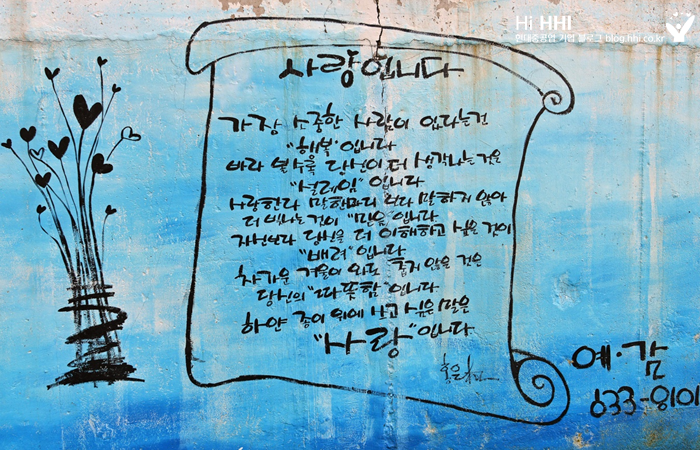 Hi HHI
현대중공업 기업 블로그 blog.hhi.co.kr
사랑입니다
가장 소중한 사람이 있다는건
"행복"입니다
바라 볼수록 당신이 더 생각나는것은
"설레임" 입니다
사랑한다 말 한마디 보다 말하지 않아
더 빛나는 것이 "믿음"입니다
자신보다 당신을 더 이해하고 싶은 것이
"배려"입니다
차가운 겨울이 와도 춥지 않을 건은
당신의 "따뜻함"입니다
하얀 종이 위에 쓰고 싶은 말은
"사랑"입니다
예·감
633-8101